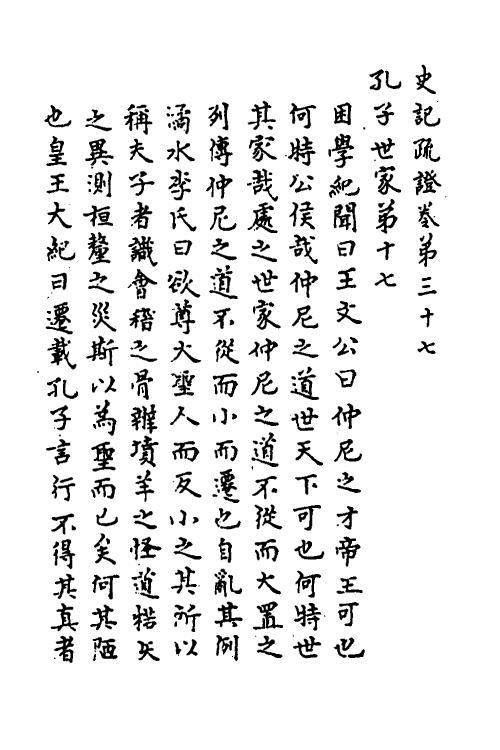 史記疏證卷第三十七
孔子世家第十七
困學紀聞曰王文公曰仲尼之才帝王可也
何特公侯哉仲尼之道世天下可也何特世
其家哉處之世家仲尼之道不從而大置之
列傳仲尼之道不從而小而遷也自亂其例
潏水李氏曰欲尊大聖人而反小之其所以
稱夫子者識會稽之骨辨墳羊之怪道楛矢
之異測桓釐之災斯以為聖而已矣何其陋
也皇王大紀曰遷載孔子言行不得其真者